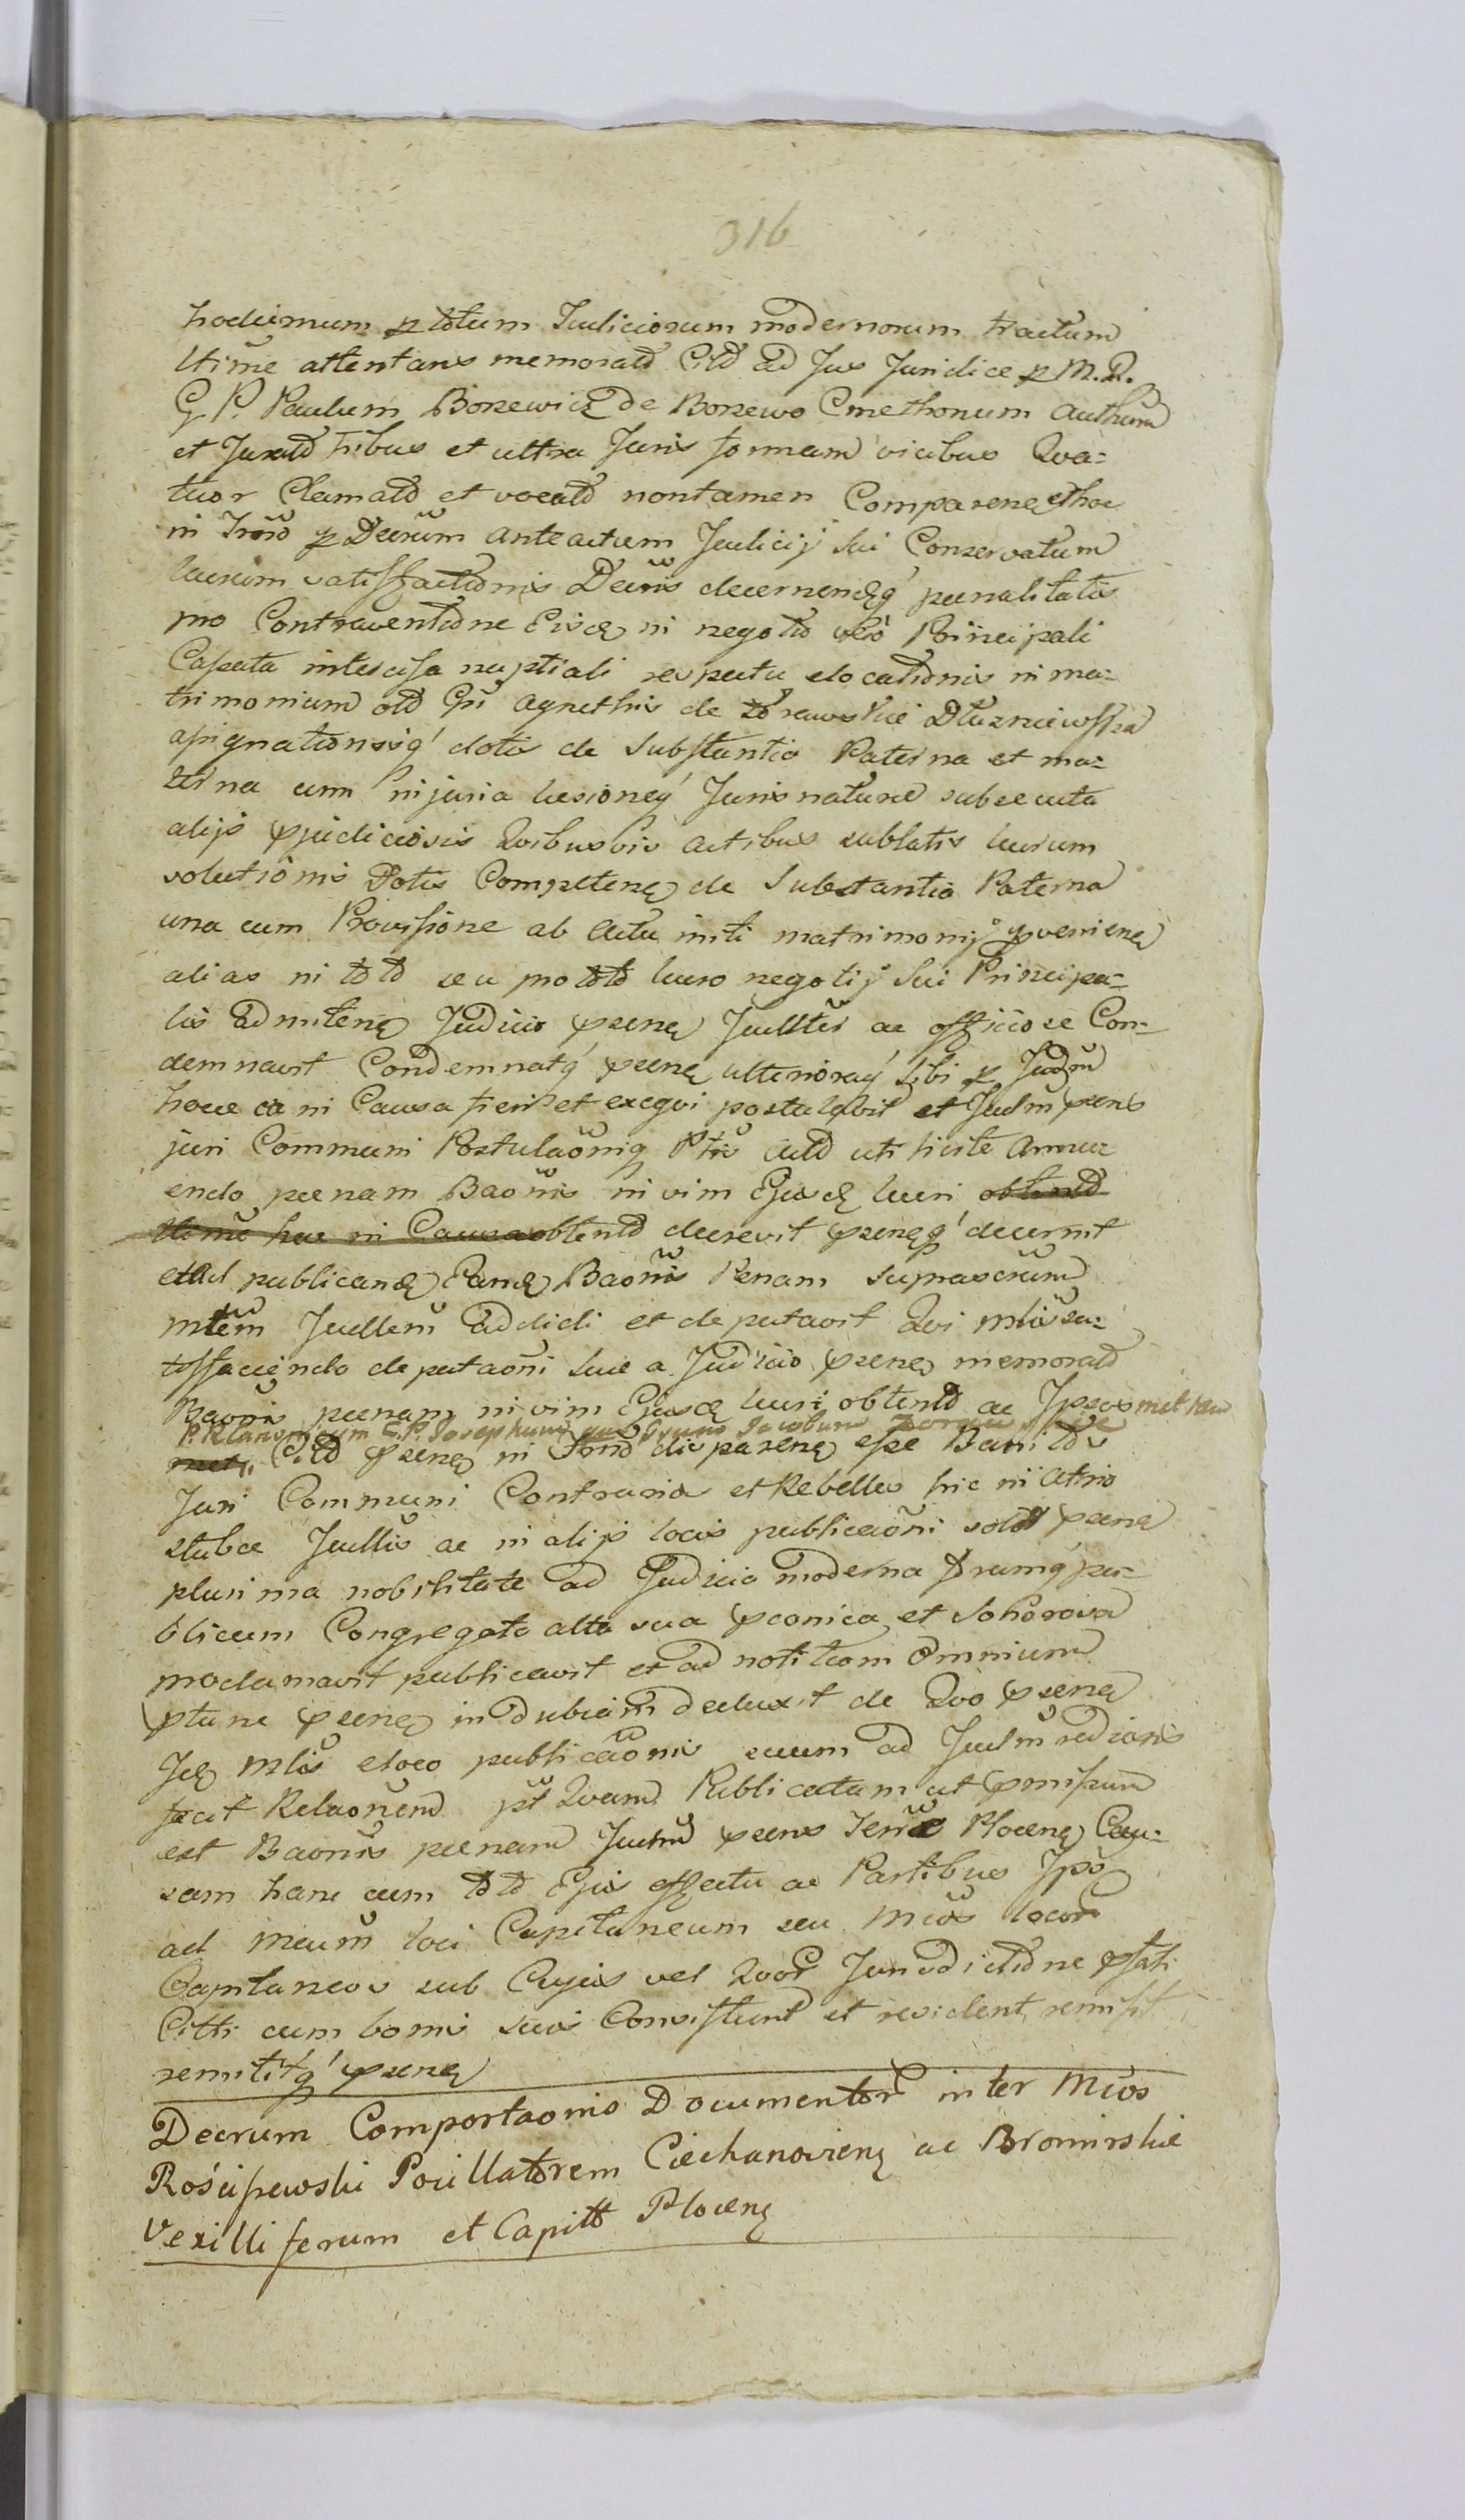 316
hodiernum p totum Judiciorum modernorum tractum
ltime attentans memoratt Citt ad Jus Juridice p M.R.
G. P. Paulum Borzewicz de Borzewo Cmethonum authum
et Juratt tribus et ultra Juris formam vicibus Qva=
tuor Clamatt et vocatt nontamen Comparenq ethoc
in Decrum anteactum Judicij sui Conservatum
lucrum satisffactionis Decris decernendq poenalitatis
pro Contraventione Eisdq in negotio vero Principali
intercisa nuptiali respectu elocationis in ma=
trimonium olt Gn Agnethis de Dłuzniewska
assignationisq dotis de Substantia Paterna et ma=
terna cum injuria lesioneq Juris naturae subsecuta
alijs pjudiciosis Qvibusvis actibus sublatis lucrum
solutionis Dotis Competenq de Substantia Paterna
una cum Provisione ab actu initi matrimonij pvenienq
alias in toto seu pro toto lucro negotij sui Principa=
lis admittenq Judicio psenq Judltter ac officiose Con=
demnavit Condemnatq psenq ulterioraq sibi p Judm
hocce ea in Causa fieri et exeqvi postulavit et Judm psens
juri Communi Postulaoniq Ptis uti licite annu=
endo poenam Baonis in vim Ejusdq lucri obtentt
ltime hac in Causa obtentt decrevit psenqq decernit
et ad publicandq Eandq Baonis Penam suprascrum
mtrem Judlem addidi et deputavit Qvi mtris sa=
tisffaciendo deputaoni suae a Judicio psenq memoratt
Baonis poenam in vim Ejusdq lucri obtentt ac Ipsosmet
P. Klary G. P. Josephum Jacobum
met Citt psenq in disparenq esse Banitos
Juri Communi Contrarios et Rebelles hic in atrio
stubae Judlis ac in alijs locis publicaoni solitt psenq
plurima nobilitate ad Judicia moderna pu=
blicum Congregata alta sua pconica et sonorosa
proclamavit publicavit et ad notitiam omnium
ptunc psenq indubiam deduxit de Qvo psenq
Idq mtris eloco publicaonis suum ad Judm redians
fecit Relaonem pt Qvam Publicatam ut pmissum
est Baonis poenam Judm psens Terre Plocenq Cau=
sam hanc cum toto Ejus effectu ac Partibus Ipsq
ad Mcum loci Capitaneum seu Mcos locor
Capitaneos sub Cujus vel Qvor Jurisdictione pfati
Citti cum bonis suis Consistunt et resident remisit
remititq psenq
Decrum Comportaonis Documentor inter Mcos
Rościszewski Pocillatorem Ciechanovienq ac Bromirskie
Vexilliferum et Capitt Plocenq